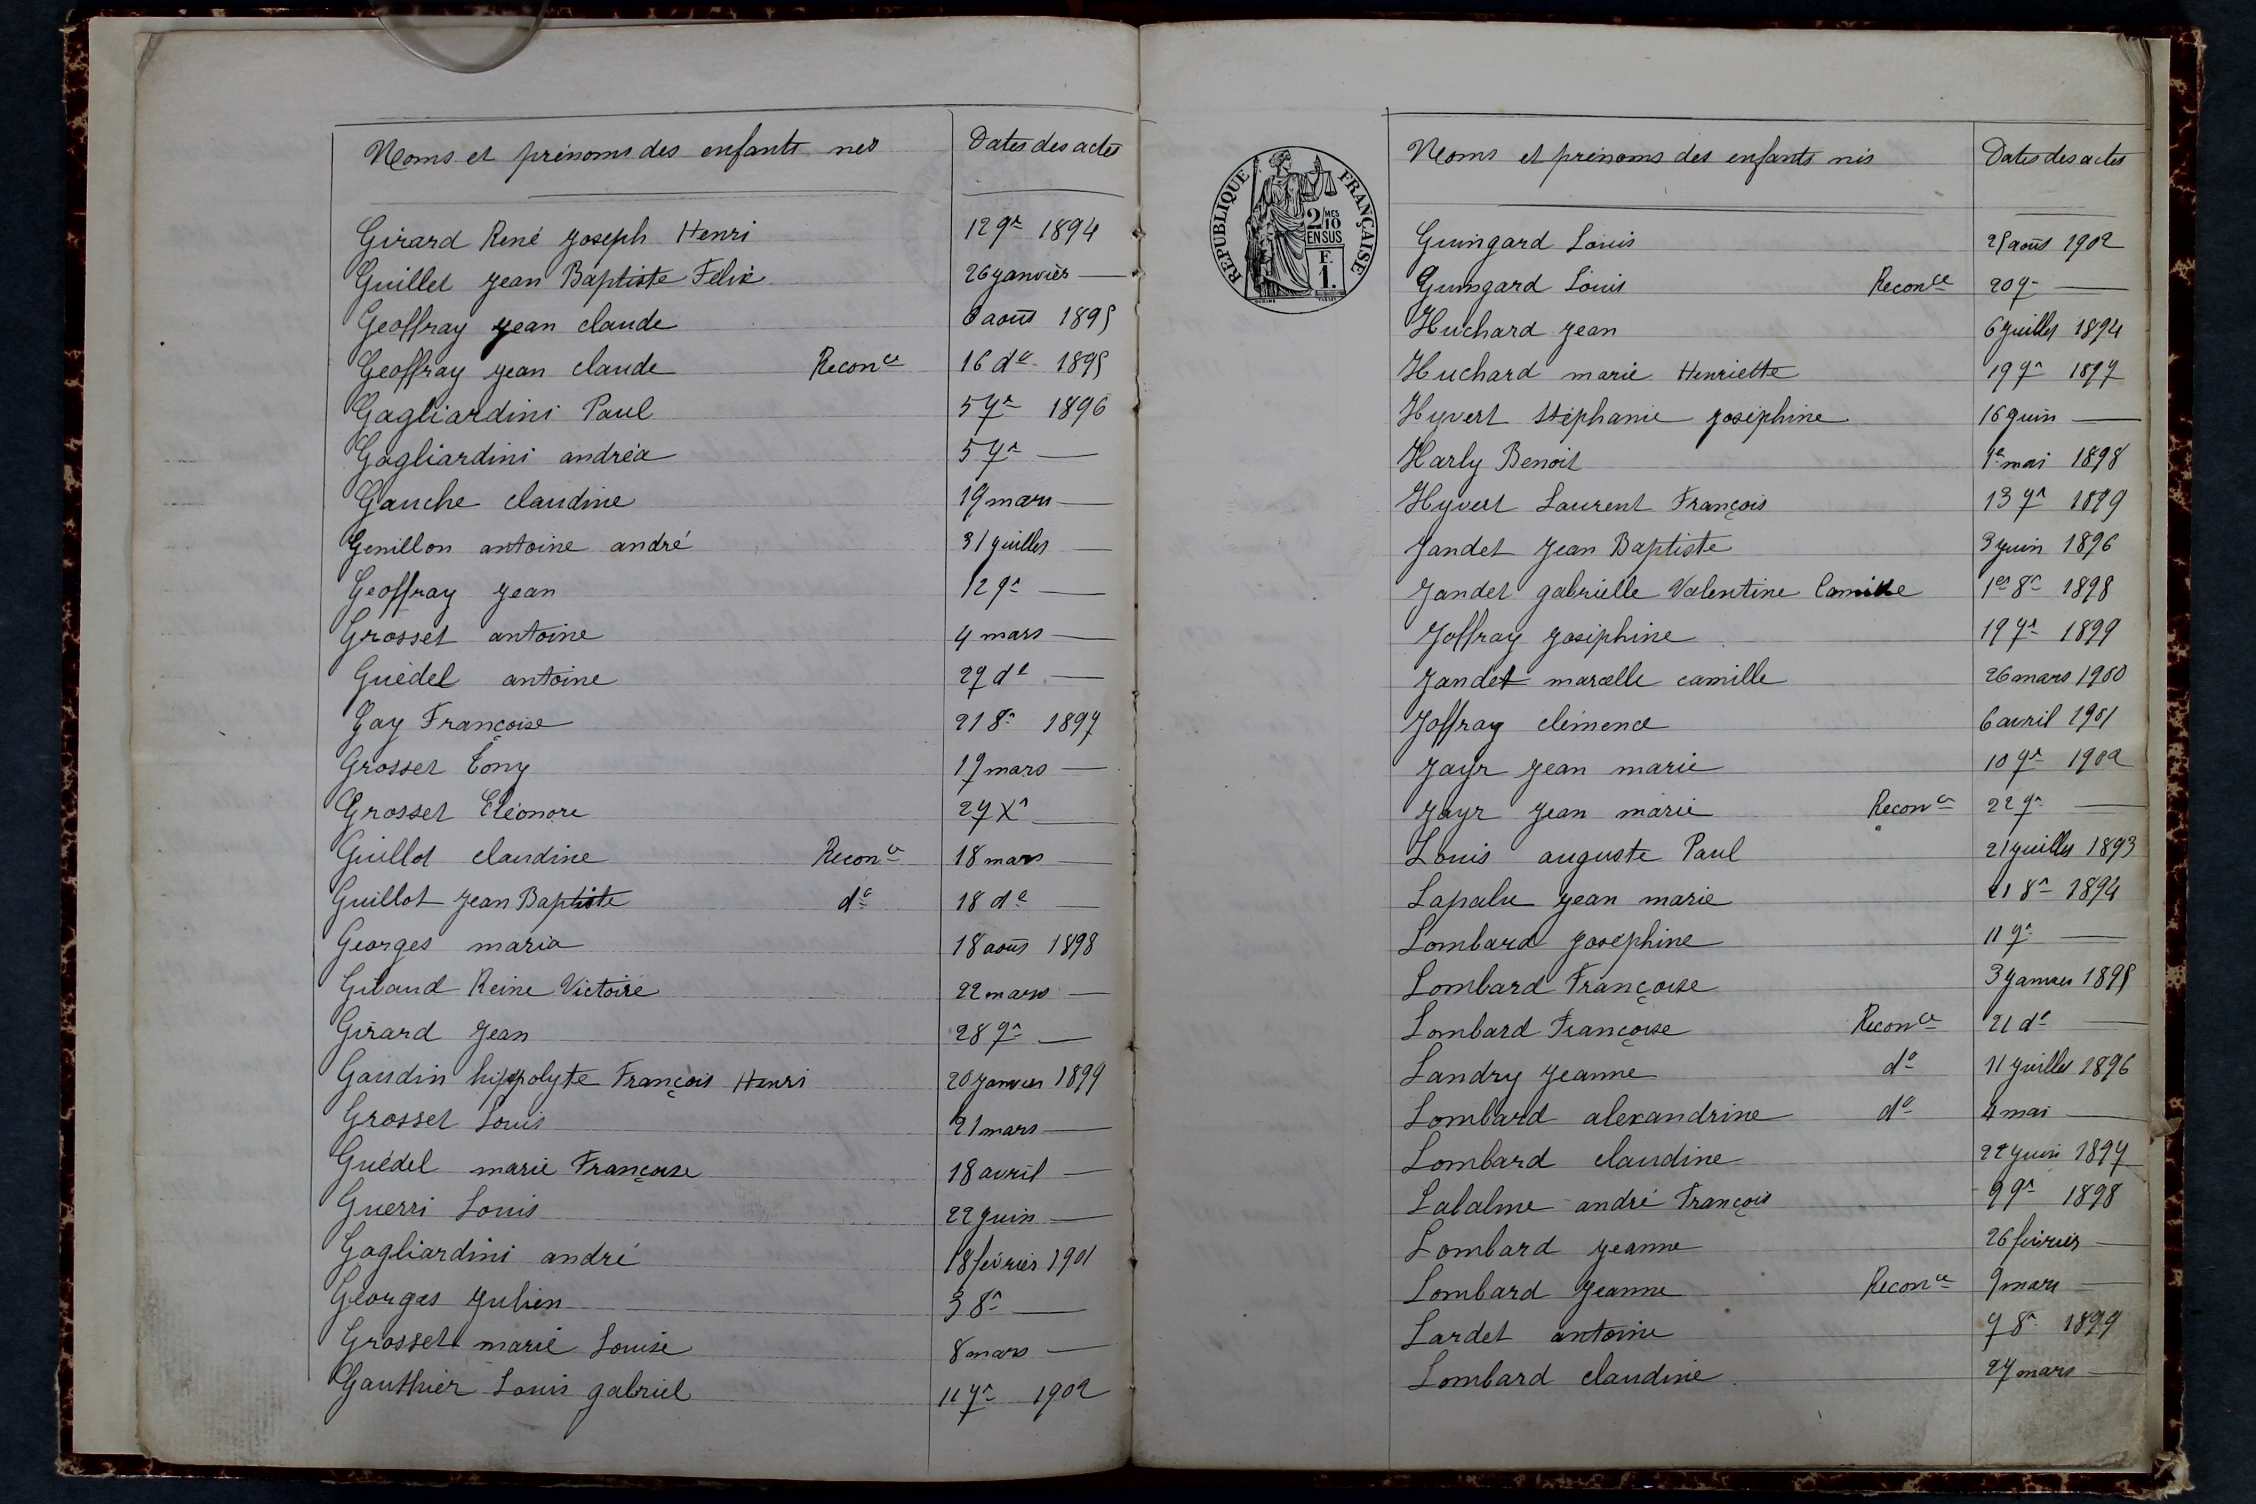 Noms et prénoms des enfants nés Dates des actes
Girard René Joseph Henri 12 9r 1894
Guillet Jean Baptiste Felix 26 janvier —
Geoffray Jean claude 6 août 1895
Geoffray Jean claude Reconce 16 do 1895
Gagliardini Paul 5 7r 1896
Gagliardini andréa 5 7r —
Gauche claudine 19 mars —
Genillon antoine andré 31 juillet —
Geoffray Jean 12 9r —
Grosset antoine 4 mars —
Guédel antoine 27 do —
Gay Françoise 21 8r 1897
Grosset Tony 17 mars —
Grosset Eléonore 27 Xr —
Guillot claudine Reconce 18 mars —
Guillot Jean Baptiste do 18 do —
Georges maria 18 août 1898
Reine Victoire 22 mars —
Girard Jean 28 9r —
Gaudin hippolyte François Henri 20 janvier 1899
Grosset Louis 21 mars —
Guédel marie Françoise 18 avril —
Guerri Louis 22 juin —
Gagliardini andré 18 février 1901
Georges Julien 3 8r —
Grosset marie Louise 8 mars —
Gauthier Louis gabriel 11 7r 1902
RÉPUBLIQUE FRANÇAISE
2/10 MES
EN SUS
F.
1.
Noms et prénoms des enfants nés Dates des actes
Guingard Louis août 1902
Guingard Louis Reconce —
Huchard Jean 6 juillet 1894
Huchard marie Henriette 19 7r 1897
Hyvert Stéphanie Joséphine 16 juin —
Harly Benoit 1er mai 1898
Hyvert Laurent François 13 7r 1899
Jandet Jean Baptiste 3 juin 1896
Jandet gabrielle Valentine Camille 1er 8r 1898
Joffray Joséphine 19 7r 1899
Jandet marcelle camille 26 mars 1900
Joffray clémence 6 avril 1901
Jayr Jean marie 10 9r 1902
Jayr Jean marie Reconce 22 9r —
Louis auguste Paul 21 juillet 1893
Lapalu Jean marie 21 8r 1894
Lombard Joséphine 11 9r —
Lombard Françoise 3 janvier 1895
Lombard Françoise Reconce 21 do —
Landry Jeanne do 11 juillet 1896
Lombard alexandrine do 4 mai —
Lombard claudine 22 juin 1897
Labalme andré François 9 9r 1898
Lombard Jeanne 26 février —
Lombard Jeanne Reconce 9 mars —
Lardet antoine 7 8r 1899
Lombard claudine 27 mars —